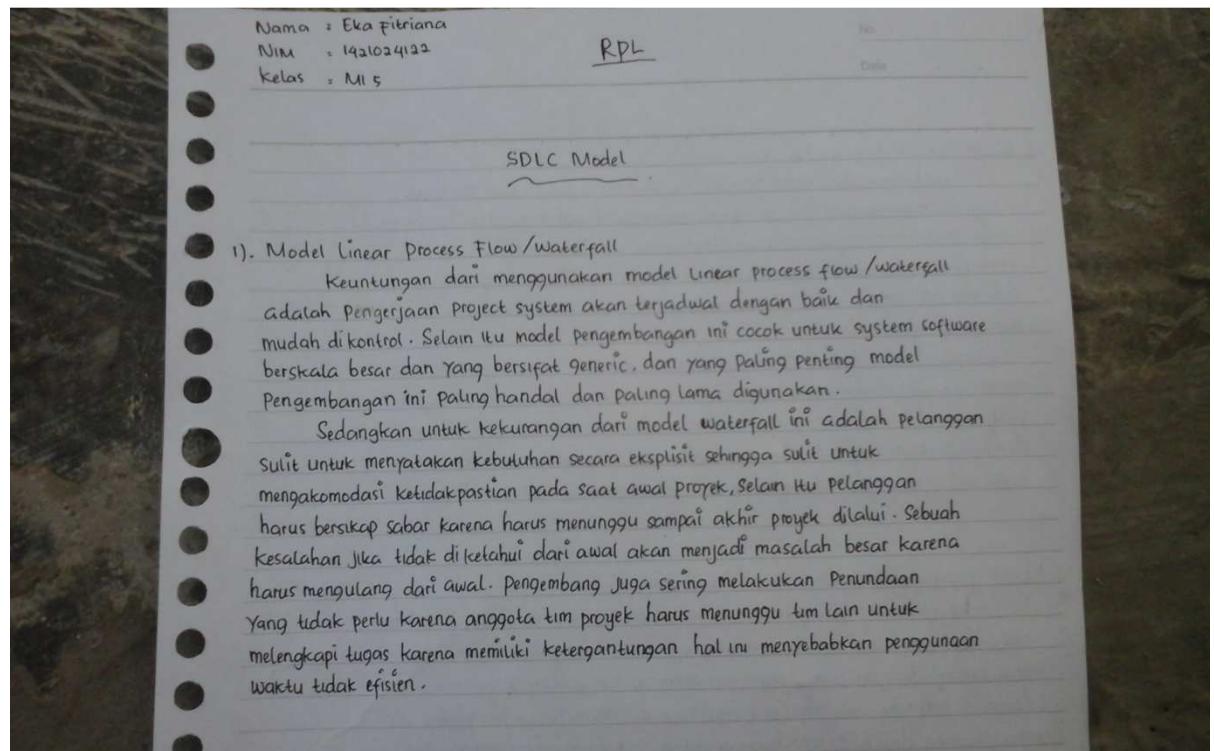 Nama : Eka Fitriana
NIM : 1421024122
Kelas : MI 5
RPL
No.
Date
SDLC Model
1). Model Linear Process Flow/Waterfall
Keuntungan dari menggunakan model Linear process flow/waterfall
adalah Pengerjaan project system akan terjadwal dengan baik dan
mudah dikontrol. Selain itu model pengembangan ini cocok untuk system software
berskala besar dan yang bersifat generic, dan yang paling penting model
Pengembangan ini paling handal dan paling lama digunakan.
Sedangkan untuk kekurangan dari model waterfall ini adalah pelanggan
sulit untuk menyatakan kebutuhan secara eksplisit sehingga sulit untuk
mengakomodasi ketidakpastian pada saat awal proyek, Selain itu pelanggan
harus bersikap sabar karena harus menunggu sampai akhir proyek dilalui. Sebuah
kesalahan jika tidak diketahui dari awal akan menjadi masalah besar karena
harus mengulang dari awal. Pengembang juga sering melakukan Penundaan
Yang tidak perlu karena anggota tim proyek harus menunggu tim lain untuk
melengkapi tugas karena memiliki ketergantungan hal ini menyebabkan penggunaan
waktu tidak efisien.